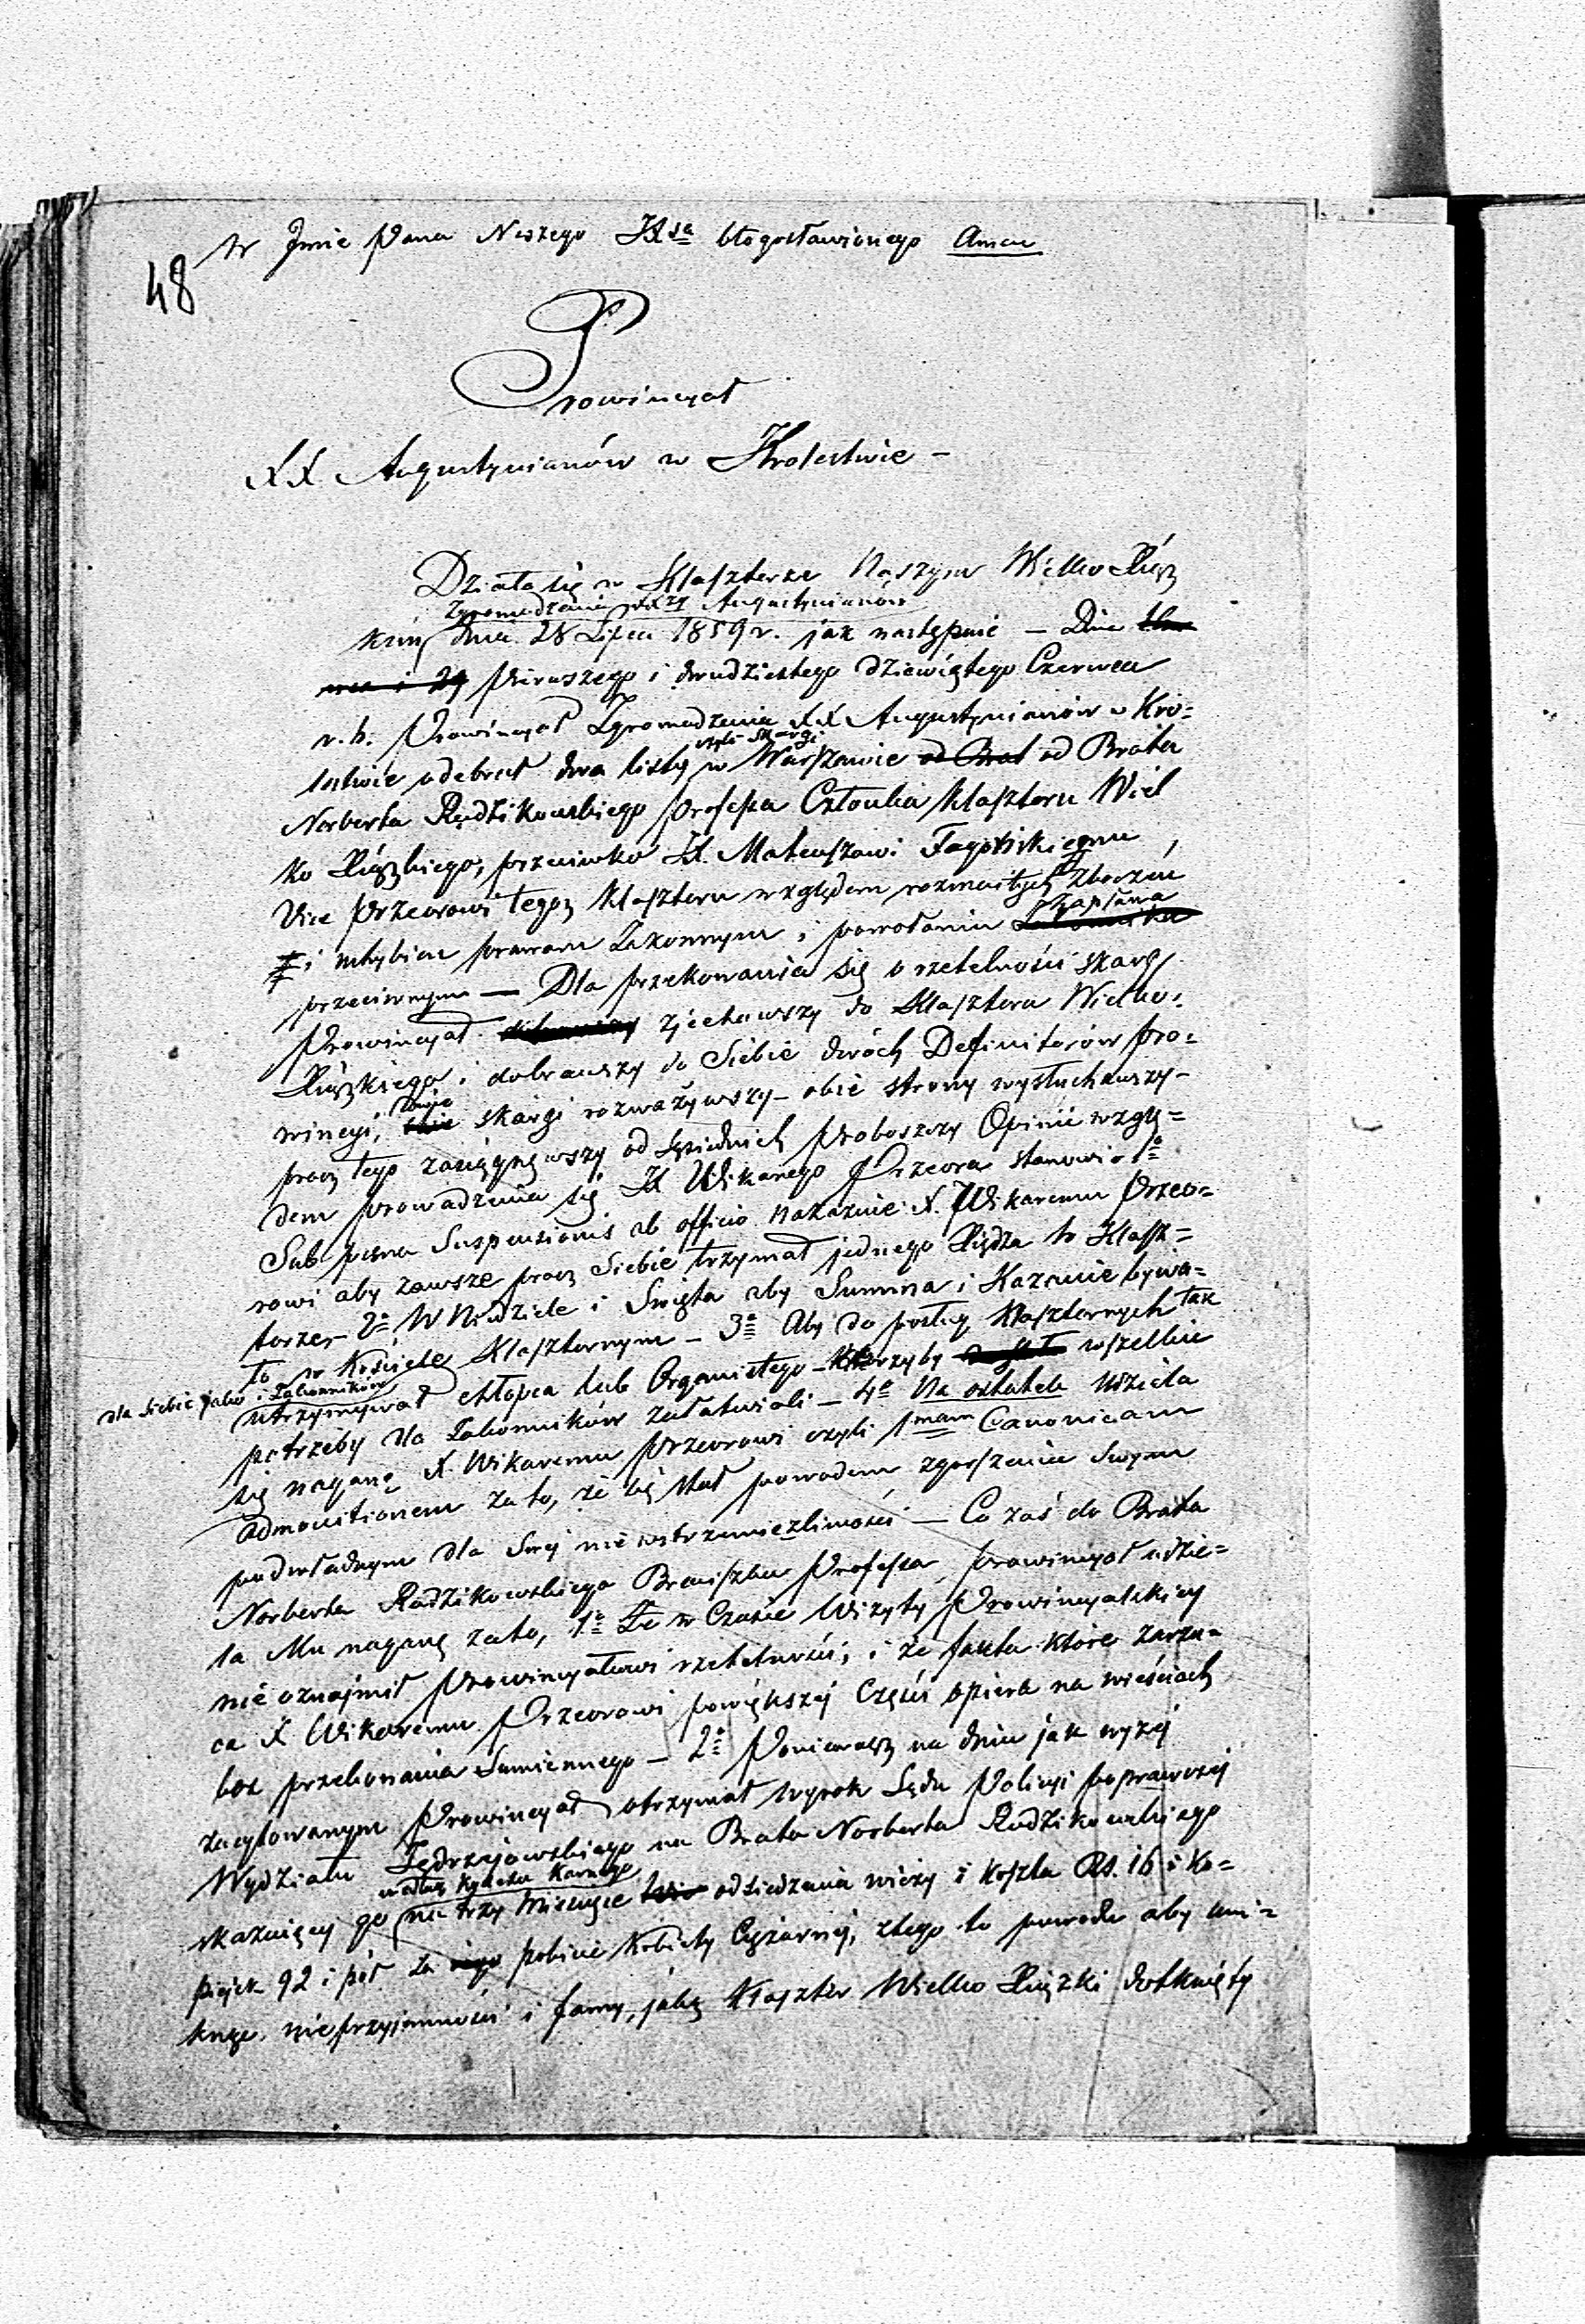 W Imie Pana Naszego JXsa błogosławionego Amen
48
Prowincyał
XX. Augustynianów w Krolestwie -
Działo się w Klasztorze Naszym Wielko Xięz
Zgromadzenia XXży Augustynianów
kim dnia 28 Lipca 1859 r. jak następuie - Dnia
29 Pierwszego i dwudziestego dziewiątego Czerwca
r. b. Prowincyał Zgromadzenia XX Augustynianów w Kro=
czyli Skargi
lestwie odebrał dwa listy w Warszawie od Brat od Brata
Norberta Radzikowskiego professa Członka Klasztoru Wiel
ko Xięzkiego, przeciwko X. Mateuszowi
Vice Przeorowi tegoz Klasztoru względem rozmaitych zboczeń
Kapłana
i uchybien prawom Zakonnym i powołaniu
przeciwnym — Dla przekonania się o rzetelności skarg
Prowincyał zjechawszy do Klasztoru Wielko=
Xięzkiego i dobrawszy do Siebie dwóch Definitorów Pro=
wincyi, skargi rozważywszy - obie strony wysłuchawszy -
procz tego zasięgnąwszy od Sąsiednich Proboszczy Opinii wzglę=
dem prowadzenia się X Wikarego Przeora stanowi - 1o
Sub pœna Suspensionis ab officio nakazuie X. Wikaremu Przeo=
rowi aby zawsze procz Siebie trzymał jednego Xiędza w Klasz=
torze - 2o W Niedziele i Swięta aby Summa i Kazanie bywa=
ło w Kosciele Klasztornym - 3o Aby do posług Klasztornych tak
dla Siebie jako i Zakonników
utrzymywał chłopca lub Organistego - Ktorzyby wszelkie
potrzeby dla Zakonników załatwiali - 4o Na ostatek udziela
się naganę X. Wikaremu Przeorowi czyli 1mam Canonicam
admonitionem za to, że się stał powodem zgorszenia Swym
podwładnym dla Swej nie wstrzemięzliwości — Co zaś do Brata
Norberta Radzikowskiego Braciszka Professa, prowincyał udzie=
la Mu naganę za to, 1o Że w Czasie Wizyty Prowincyalskiej
nie oznajmił Prowincyałowi rzetelności, i że fakta które zarzu=
ca X Wikaremu Przeorowi powiększej Części opiera na wieściach
bez przekonania Sumiennego - 2o Ponieważ na dniu jak wyżej
zacytowanym Prowincyał otrzymał wyrok Sądu Policyi poprawczej
Wydziału Jędrzejowskiego na Brata Norberta Radzikowskiego
Karnego
skazuiący go na trzy Miesiące odsiedzenia wieży i koszta Rs. 16 i Ko=
piejek 92 i pół za pobicie Kobiety Ciężarnej, z tego to powodu aby uni=
knąć nieprzyjemności i famy, jaką Klasztor Wielko Xiązki dotknięty